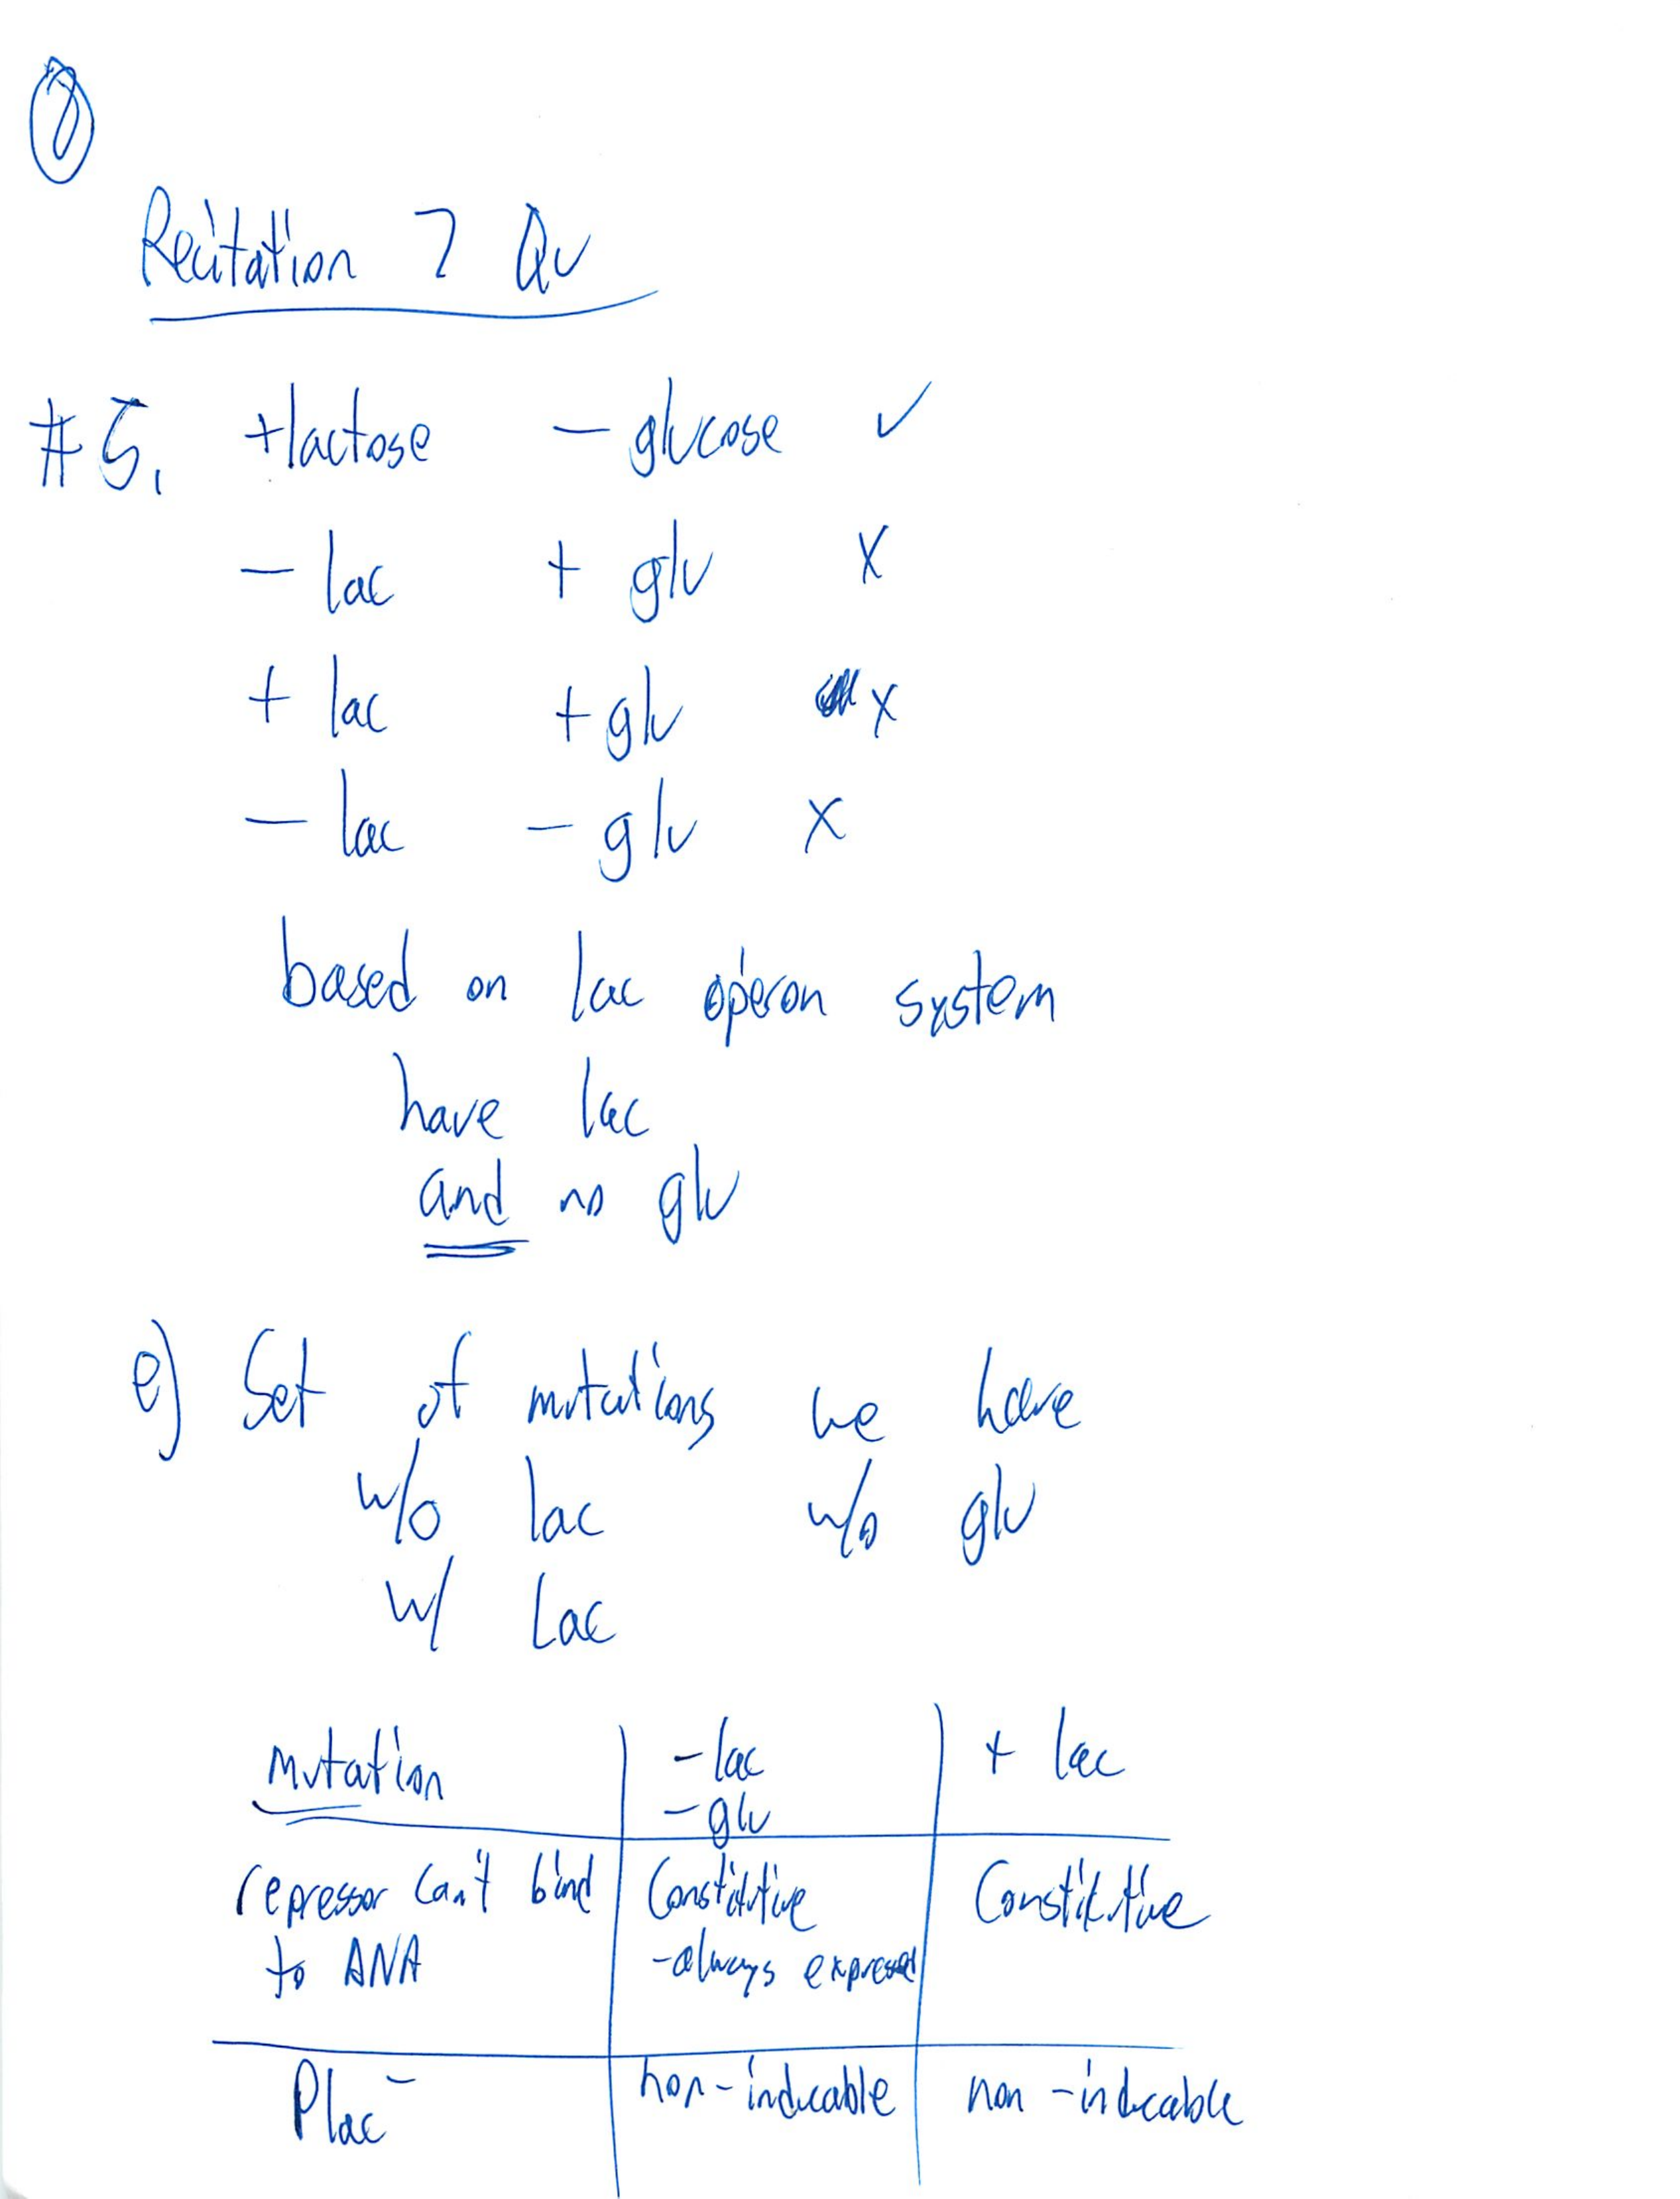 Recitation 7 Qu
#5. +lactose - glucose ✓
- lac + glu x
+ lac + glu x
- lac - glu x
based on lac operon system
have lac
and no glu
e) Set of mutations we have
w/o lac w/o glu
w/ Lac
Mutation
-lac
-glu
+ lac
repressor can't bind
to DNA
Constitutive
-always expressed
Constitutive
Plac⁻
non-inducable
non-inducable